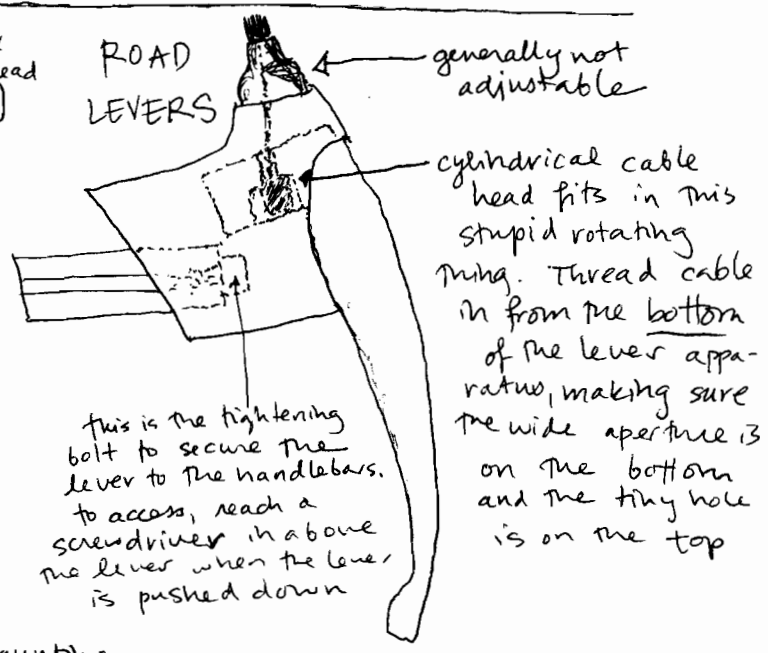 ead
ROAD
LEVERS
generally not
adjustable
cylindrical cable
head fits in this
stupid rotating
thing. Thread cable
in from the bottom
of the lever appa-
ratus, making sure
the wide aperture is
on the bottom
and the tiny hole
is on the top
this is the tightening
bolt to secure the
lever to the handlebars.
to access, reach a
screwdriver in above
the lever when the lever
is pushed down